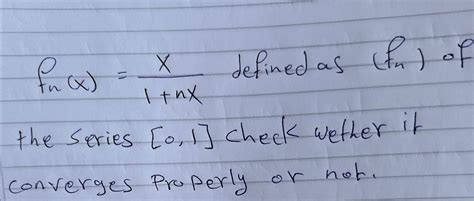 fn(x) = x / 1 + nx defined as (fn) of
the series [0,1] check wether it
converges Properly or not.